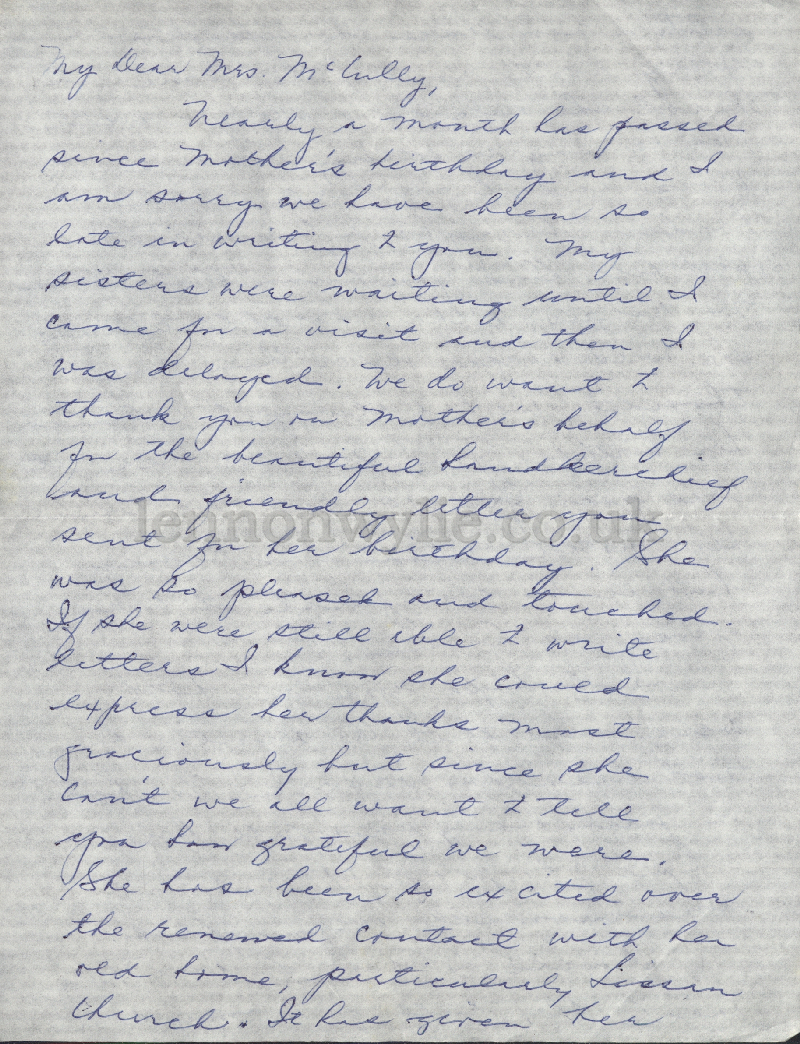 My Dear Mrs. McCully,
Nearly a month has passed
since Mother's birthday and I
am sorry we have been so
late in writing to you. My
sisters were waiting until I
came for a visit and then I
was delayed. We do want to
thank you on Mother's behalf
for the beautiful handkerchief
and friendly letter you
lennonwylie.co.uk
sent for her birthday. She
was so pleased and touched.
If she were still able to write
letters I know she could
express her thanks most
graciously but since she
can't we all want to tell
you how grateful we were.
She has been so excited over
the renewed contact with her
old home, particularly Lissan
Church. It has given her